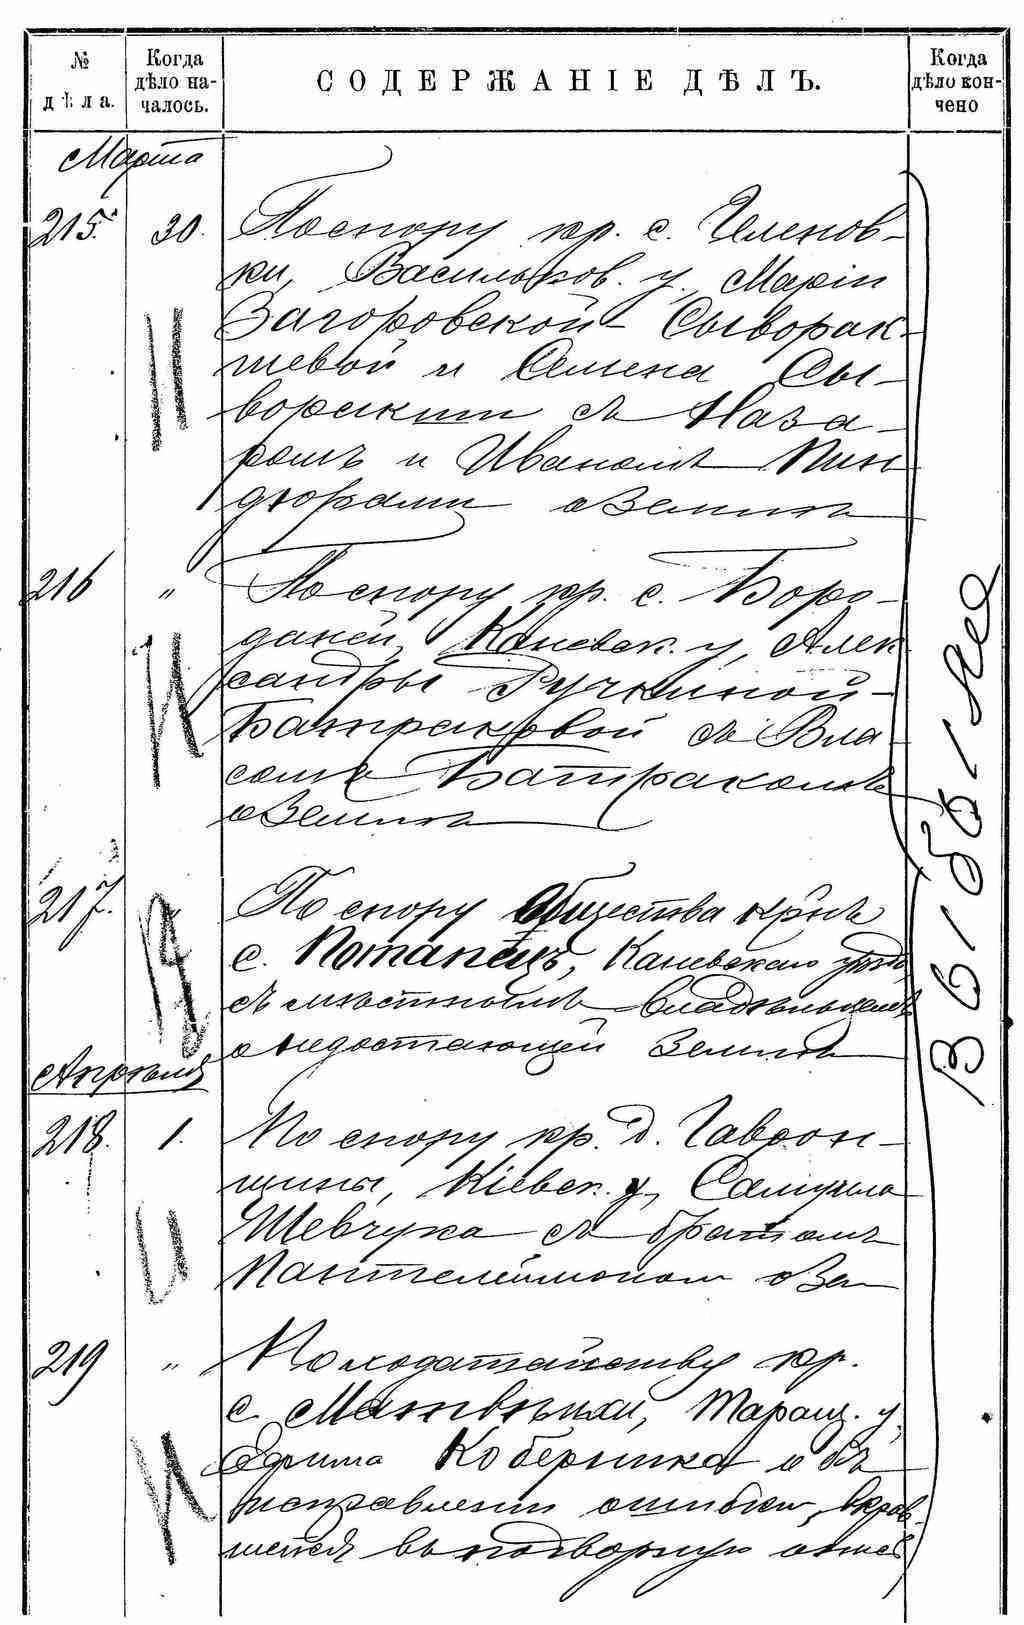 № дѣла.
Когда дѣло началось.
СОДЕРЖАНІЕ ДѢЛЪ.
Когда дѣло кончено
Марта
215. 30. По спору кр. с. Еленов-
ки, Васильков. у. Маріи
Загоровской-Сыворак-
шевой и Семена Сы-
воракши съ Наза-
ромъ и Иваномъ Пин-
дюрами о землѣ
216 " По спору кр. с. Боро-
даней, Каневск. у, Алек
сандры Ручкиной-
Батраковой съ Вла-
сомъ Батракомъ
о землѣ
217. " По спору Общества кр-нъ
с. Потапецъ, Каневскаго уѣзда,
съ мѣстнымъ владѣльцемъ
о недостающей землѣ
Апрѣля
218. 1. По спору кр. д. Гаврон-
щины, Кіевск. у, Самуила
Шевчука съ братомъ
Пантелеймоном о зем
219 " По ходатайству кр.
с. Матвѣихи, Таращ. у.
Ефима Коберника объ
исправленіи ошибки, вкрав-
шейся въ подворную опись
Выбыло